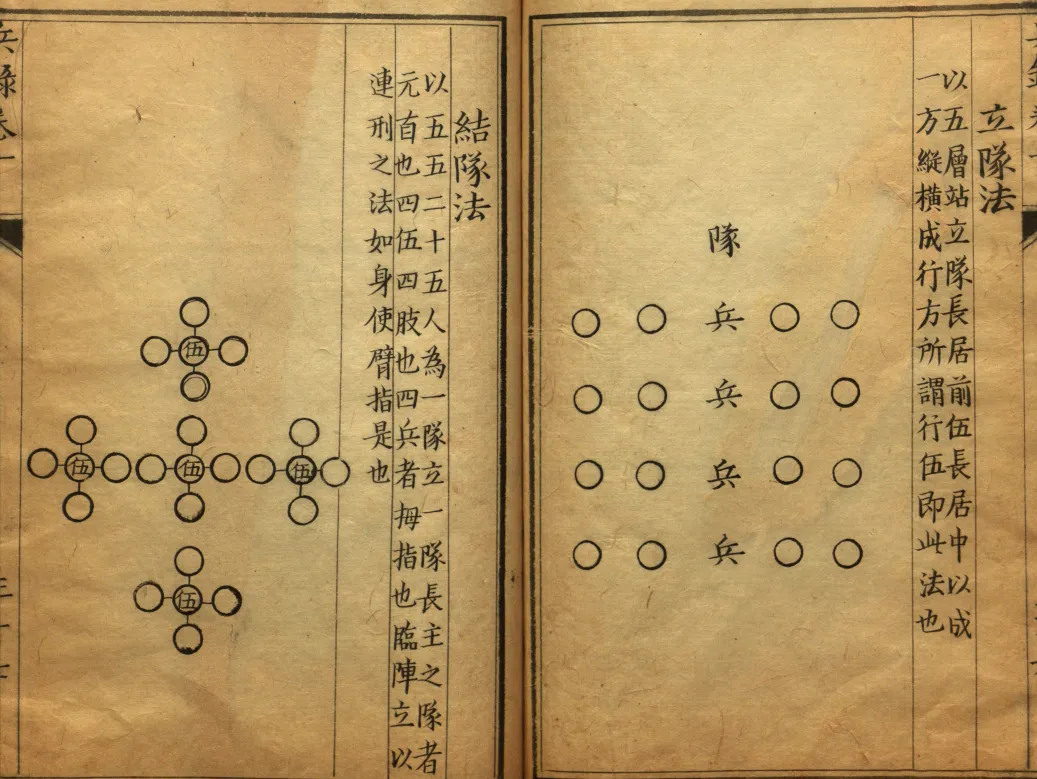 立隊法
以五層站立隊長居前伍長居中以成
一方縱橫成行方所謂行伍即此法也
隊
兵
兵
兵
兵
結隊法
以五五二十五人為一隊立一隊長主之隊者
元首也四伍四肢也四兵者拇指也臨陣立以
連刑之法如身使臂指是也
伍
伍
伍
伍
伍
兵錄卷一